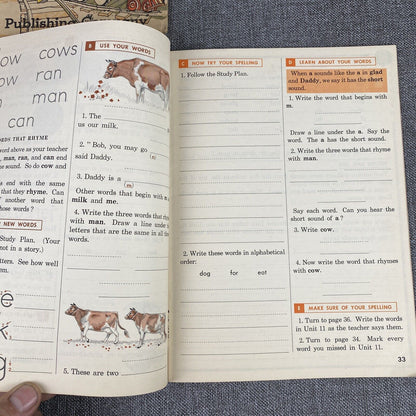 Publishing
ow cows
ow ran
man
can
ORDS THAT RHYME
word above as your teacher
, man, ran, and can end
e sound. So do cow and
s end with the same
that they rhyme. Can
f another word that
hose words?
NEW WORDS
Study Plan. (Your
not in a story.)
etters. See how well
em.
e
k
g
B USE YOUR WORDS
1. The
us our milk.
2. "Bob, you may go
said Daddy. (n)
3. Daddy is a
(m)
Other words that begin with m
milk and me.
4. Write the three words that rhyme
with man. Draw a line under
letters that are the same in all
words.
5. These are two
C NOW TRY YOUR SPELLING
1. Follow the Study Plan.
2. Write these words in alphabetical
order:
dog for eat
D LEARN ABOUT YOUR WORDS
When a sounds like the a in glad
and Daddy, we say it has the short
sound.
1. Write the word that begins with
m.
Draw a line under the a. Say the
word. The a has the short sound.
2. Write the three words that rhyme
with man.
Say each word. Can you hear the
short sound of a?
3. Write cow.
4. Now write the word that rhymes
with cow.
E MAKE SURE OF YOUR SPELLING
1. Turn to page 36. Write the words
in Unit 11 as the teacher says them.
2. Turn to page 34. Mark every
word you missed in Unit 11.
33